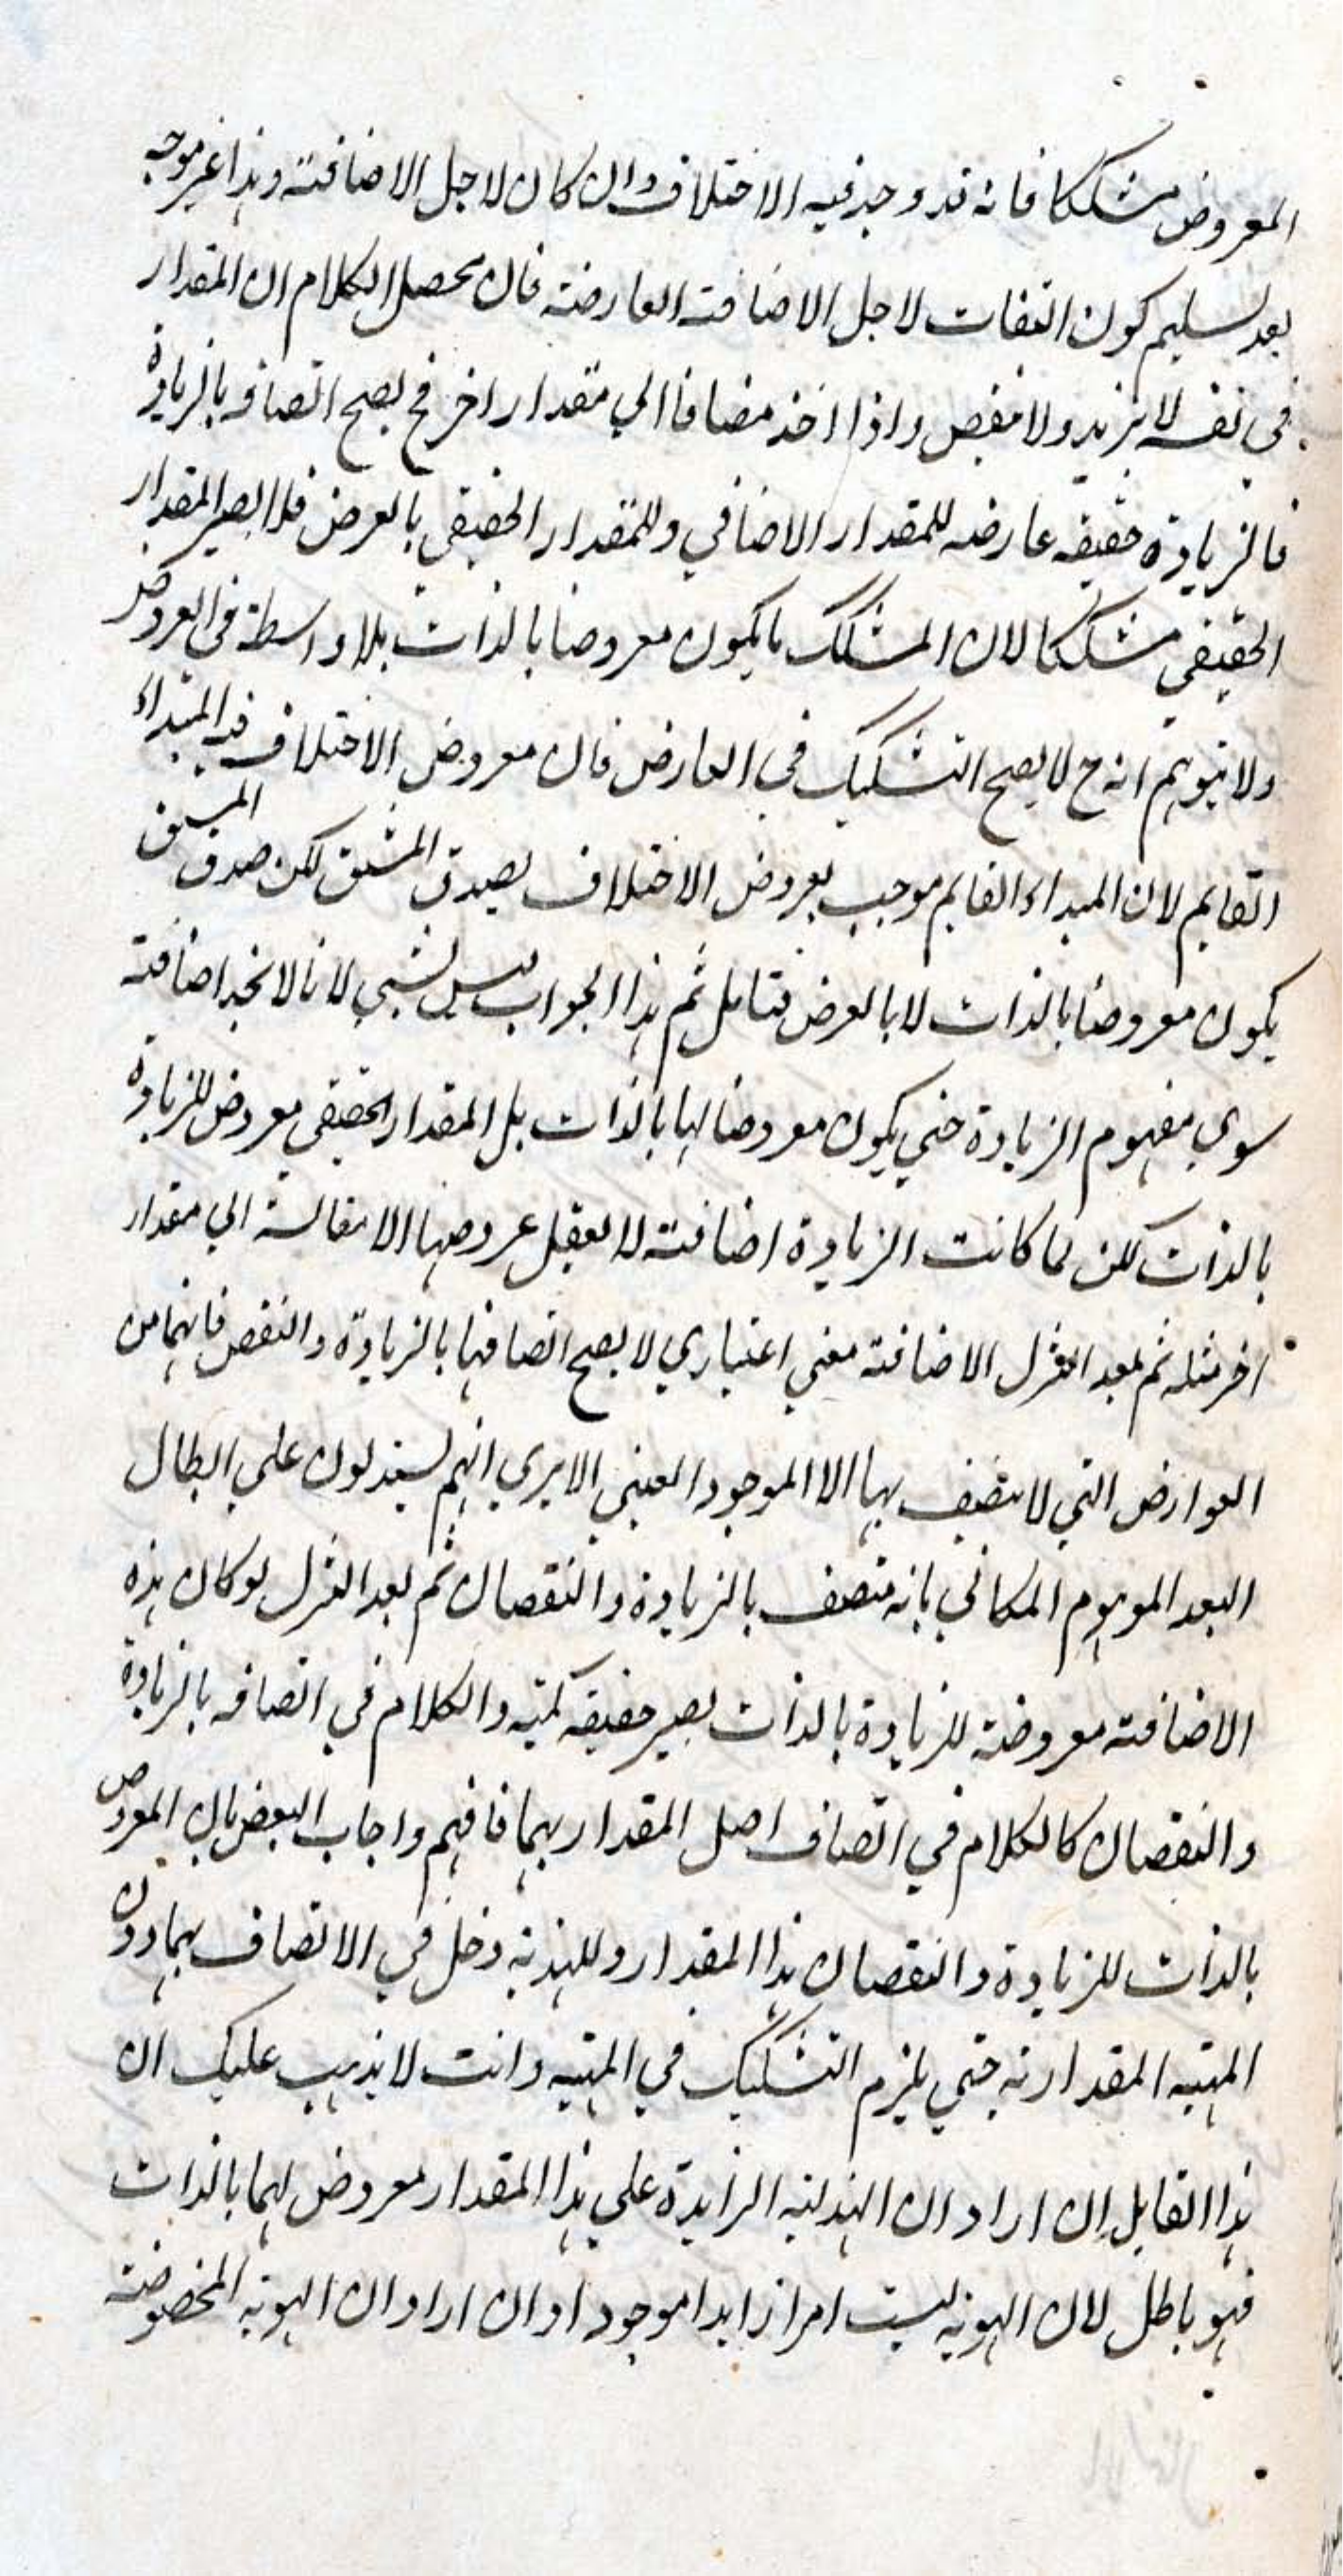 المعروض مشككا فانه قد وجد فيه الاختلاف وان كان لاجل الاضافته وهذا غير موجه
بعد تسليم كون التفات لاجل الاضافته العارضته فان محصل الكلام ان المقدار
في نفسه لا يزيد ولا ينقص واذا اخذ مضافا الي مقدار اخر فح يصح اتصافه بالزيادة
فالزيادة حقيقه عارضه للمقدار الاضافي وللمقدار الحقيقي بالعرض فلا يصير المقدار
الحقيقي مشككا لان المشكك ما يكون معروضا بالذات بلا واسطة في العروض
ولا يتوهم انه ح لا يصح التشكيك في العارض فان معروض الاختلاف فيه المبداء
القايم لان المبداء القايم موجب بعروض الاختلاف بصدق المشتق لكن صدق المشتق
يكون معروضا بالذات لا بالعرض فتامل ثم هذا الجواب ليس بشيي لانا لا نجد اضافته
سوي مفهوم الزيادة حتي يكون معروضا لها بالذات بل المقدار الحقيقي معروض للزيادة
بالذات لكن لما كانت الزيادة اضافته لا يعقل عروضها الا مقالسة الي مقدار
اخر مثله ثم بعد التنزل الاضافته معني اعتباري لا يصح اتصافها بالزيادة والنقص فانهما من
العوارض التي لا يتصف بها الا الموجود العيني الا يري انهم يستدلون علي ابطال
البعد الموهوم المكاني بانه متصف بالزيادة والنقصان ثم بعد التنزل لو كان هذه
الاضافته معروضته للزيادة بالذات يصير حقيقه كميه والكلام في اتصافه بالزيادة
والنقصان كالكلام في اتصاف اصل المقدار بهما فافهم واجاب البعض بان المعروض
بالذات للزيادة والنقصان هذا المقدار وللهذيه دخل في الاتصاف بهما دون
المهيه المقداريه حتي يلزم التشكيك في المهيه وانت لا يذهب عليك ان
هذا القايل ان اراد ان الهذيه الزايدة علي هذا المقدار معروض لهما بالذات
فهو باطل لان الهويه ليست امرا زايدا موجودا وان اراد ان الهويه المخصوصته